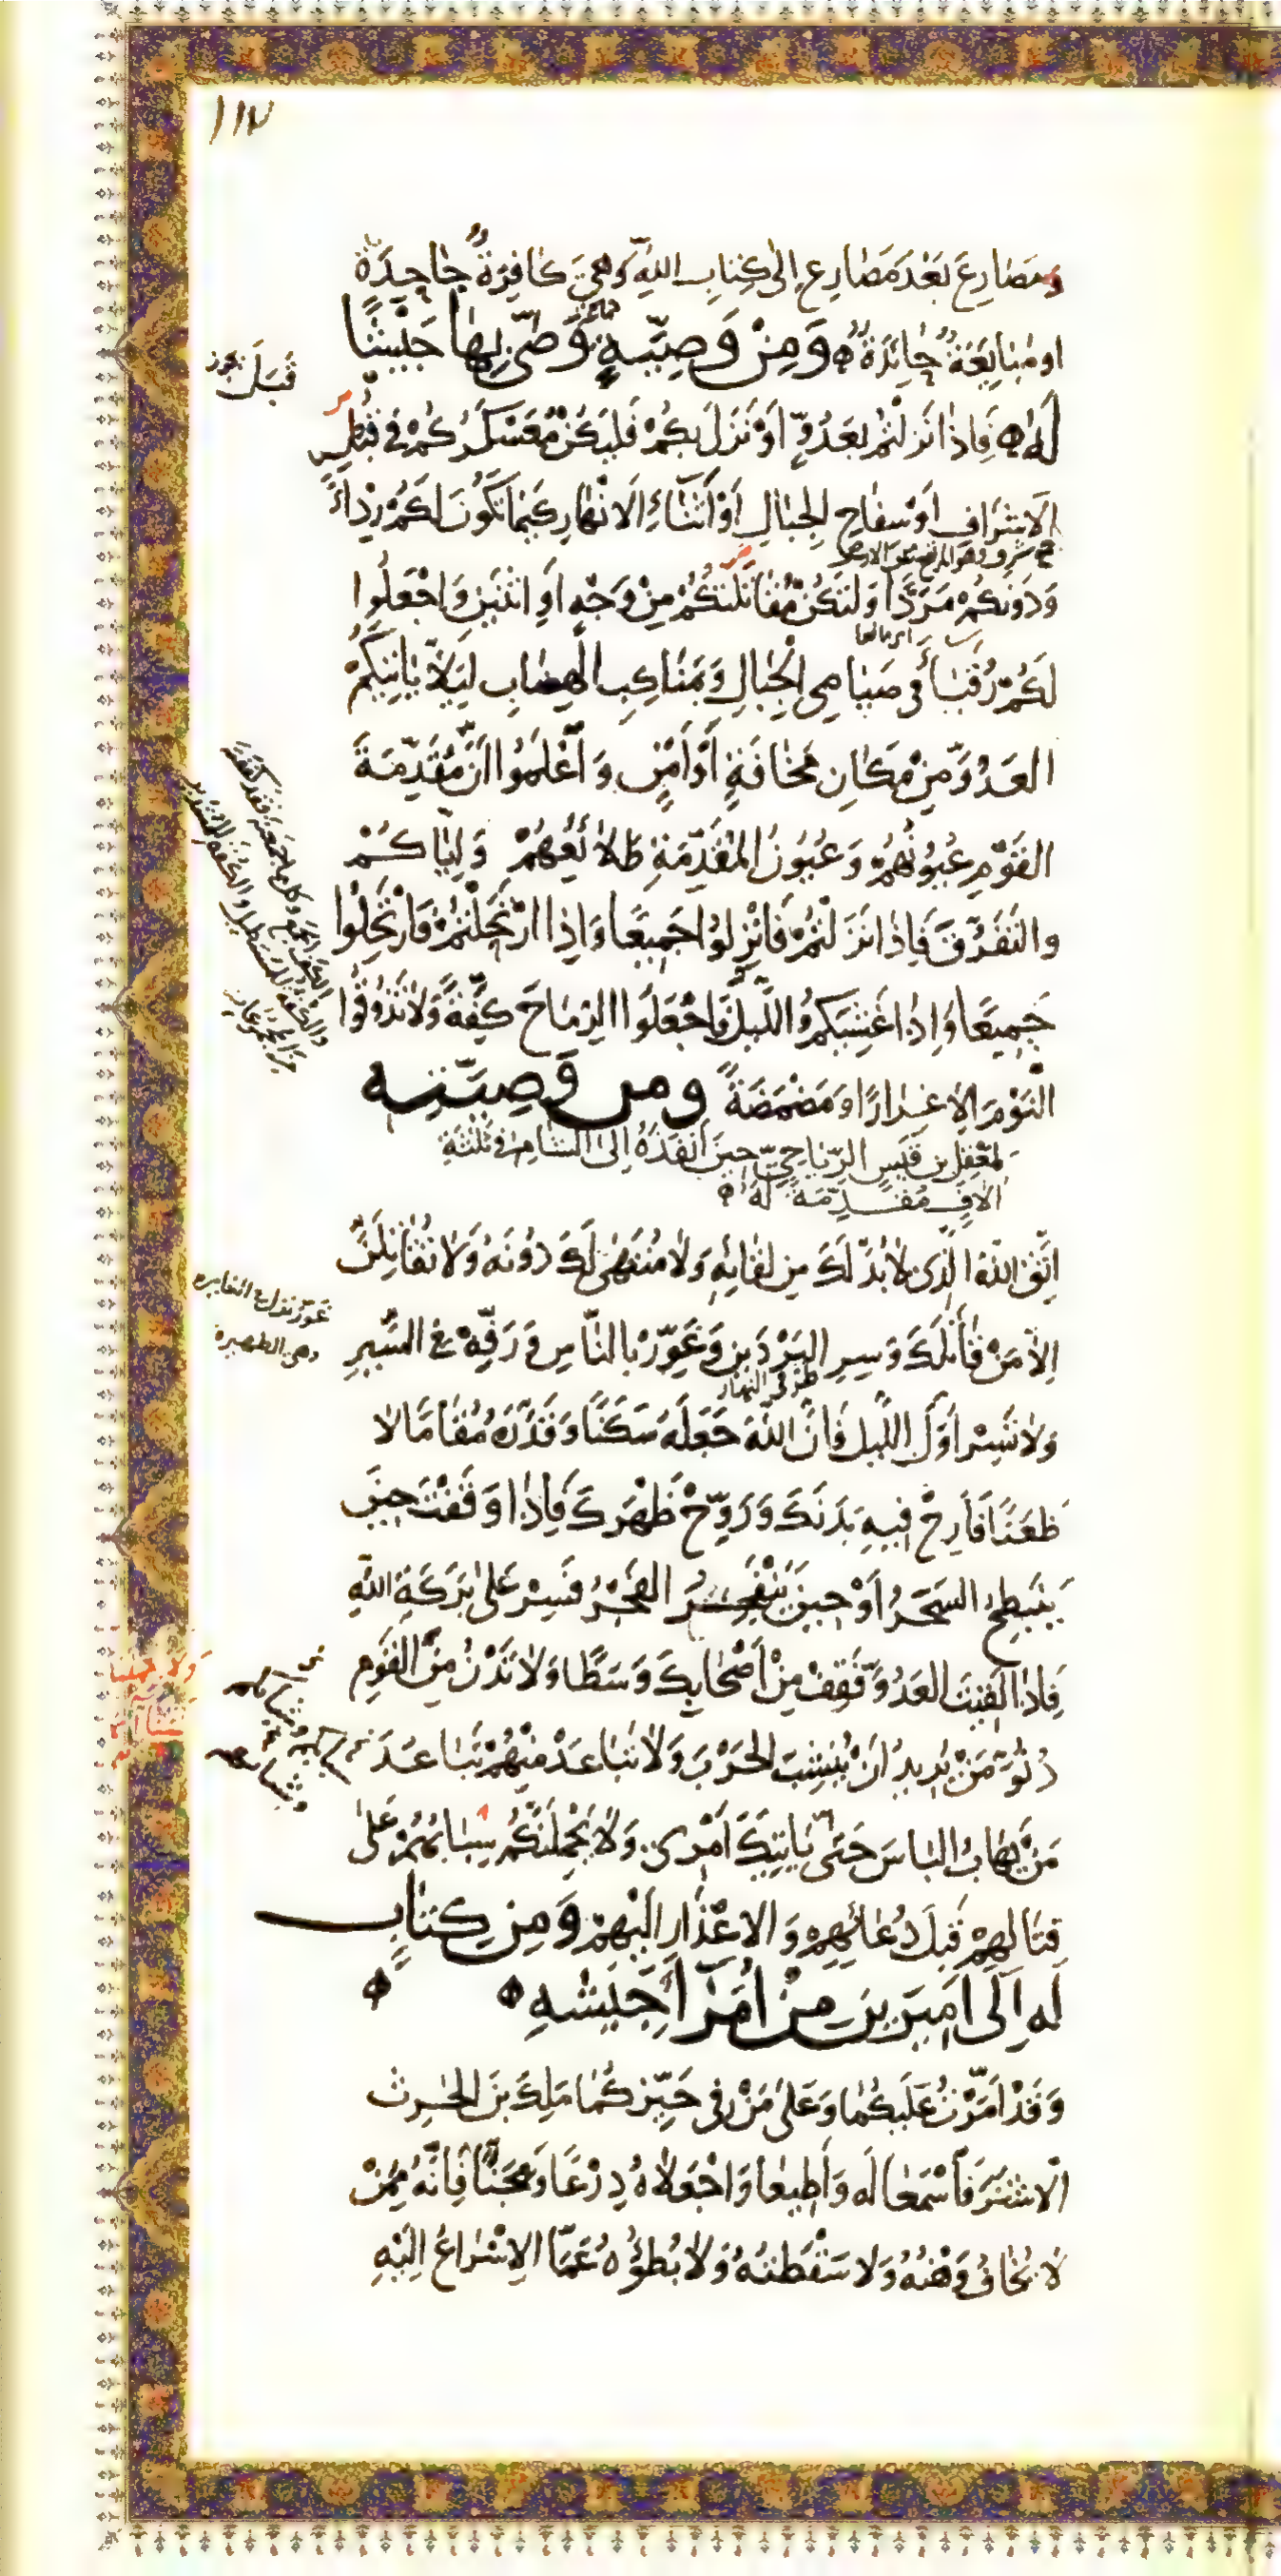 ١١٧
وَمَصَارِعَ بَعْدَ مَصَارِعِ إِلَى كِتَابِ اللهِ وَهِيَ كَافِرَةٌ جَاحِدَةٌ
او مُبَايِعَةٌ حَائِدَةٌ وَمِنْ وَصِيَّةٍ وَصَّى بِهَا جَيْشًا
قُبُلَ يجوز
لَهُ فَإِذَا نَزَلْتُمْ بِعَدُوٍّ اَوْ نَزَلَ بِكُمْ فَلْيَكُنْ مُعَسْكَرُكُمْ فِي قُبُلِ
الْاَشْرَافِ اَوْ سِفَاحِ الْجِبَالِ اَوْ اَثْنَاءِ الْاَنْهَارِ كَيْمَا تَكُونَ لَكُمْ رِدْاءً
وَدُونَكُمْ مَرَدًّا وَلْتَكُنْ مُقَاتَلَتُكُمْ مِنْ وَجْهٍ اَوِ اثْنَيْنِ وَاجْعَلُوا
لَكُمْ رُقَبَاءَ فِي صَيَاصِي الْجِبَالِ وَبِمَنَاكِبِ الْهِضَابِ لِيَلَّا يَاتِيَكُمُ
الْعَدُوُّ مِنْ مَكَانِ مَخَافَةٍ اَوْ اَمْنٍ وَاعْلَمُوا اَنَّ مُقَدِّمَةَ
الْقَوْمِ عُيُونُهُمْ وَعُيُونُ الْمُقَدِّمَةِ طَلَائِعُهُمْ وَاِيَّاكُمْ
وَالتَّفَرُّقَ فَإِذَا نَزَلْتُمْ فَانْزِلُوا جَمِيعًا وَاِذَا ارْتَحَلْتُمْ فَارْتَحِلُوا
جَمِيعًا وَاِذَا غَشِيَكُمُ اللَّيْلُ فَاجْعَلُوا الرِّمَاحَ كِفَّةً وَلَا تَذُوقُوا
النَّوْمَ اِلَّا غِرَارًا اَو مَضْمَضَةً وَمِن وَصِيَّتِهِ
لِمَعْقِلِ بْنِ قَيْسٍ الرِّيَاحِيِّ حِينَ اَنْفَذَهُ اِلَى الشَّامِ فِي ثَلٰثَةِ
الَافٍ مُقَدِّمَةً لَهُ
اِتَّقِ اللهَ الَّذِي لَا بُدَّ لَكَ مِن لِقَائِهِ وَلَا مُنْتَهَى لَكَ دُونَهُ وَلَا تُقَاتِلَنَّ
اِلَّا مَنْ قَاتَلَكَ وَسِرِ الْبَرْدَيْنِ وَغَوِّرْ بِالنَّاسِ وَرَفِّهْ فِي السَّيْرِ
طرفي النهار
غَوِّرْ نزل في الغايرة
وهي الظهيرة
وَلَا تَسِرْ اَوَّلَ اللَّيْلِ فَاِنَّ اللهَ جَعَلَهُ سَكَنًا وَقَدَّرَهُ مُقَامًا لَا
ظَعْنًا فَاَرِحْ فِيهِ بَدَنَكَ وَرَوِّحْ ظَهْرَكَ فَاِذَا وَقَفْتَ حِينَ
يَنْبَطِحُ السَّحَرُ اَوْ حِينَ يَنْفَجِرُ الْفَجْرُ فَسِرْ عَلَى بَرَكَةِ اللهِ
فَاِذَا لَقِيتَ الْعَدُوَّ فَقِفْ مِنْ اَصْحَابِكَ وَسَطًا وَلَا تَدْنُ مِنَ الْقَوْمِ
دُنُوَّ مَنْ يُرِيدُ اَنْ يُنْشِبَ الْحَرْبَ وَلَا تَبَاعَدْ مِنْهُمْ تَبَاعُدَ
مَنْ يَهَابُ الْبَاسَ حَتَّى يَاتِيَكَ اَمْرِي وَلَا يَحْمِلَنَّكُمْ سِبَابُهُمْ عَلَى
قِتَالِهِمْ قَبْلَ دُعَائِهِمْ وَالْاِعْذَارِ اِلَيْهِمْ وَمِن كِتَابٍ
لَهُ اِلَى اَمِيرَيْنِ مِنْ اُمَرَآءِ جَيْشِهِ
وَقَدْ اَمَّرْتُ عَلَيْكُمَا وَعَلَى مَنْ فِي حَيِّزِكُمَا مَلِكَ بْنَ الْحٰرِثِ
الْاَشْتَرَ فَاسْمَعَا لَهُ وَاَطِيعَا وَاجْعَلَاهُ دِرْعًا وَمِجَنًّا فَاِنَّهُ مِمَّنْ
لَا يُخَافُ وَهْنُهُ وَلَا سَقْطَتُهُ وَلَا بُطْؤُهُ عَمَّا الْاِسْرَاعُ اِلَيْهِ